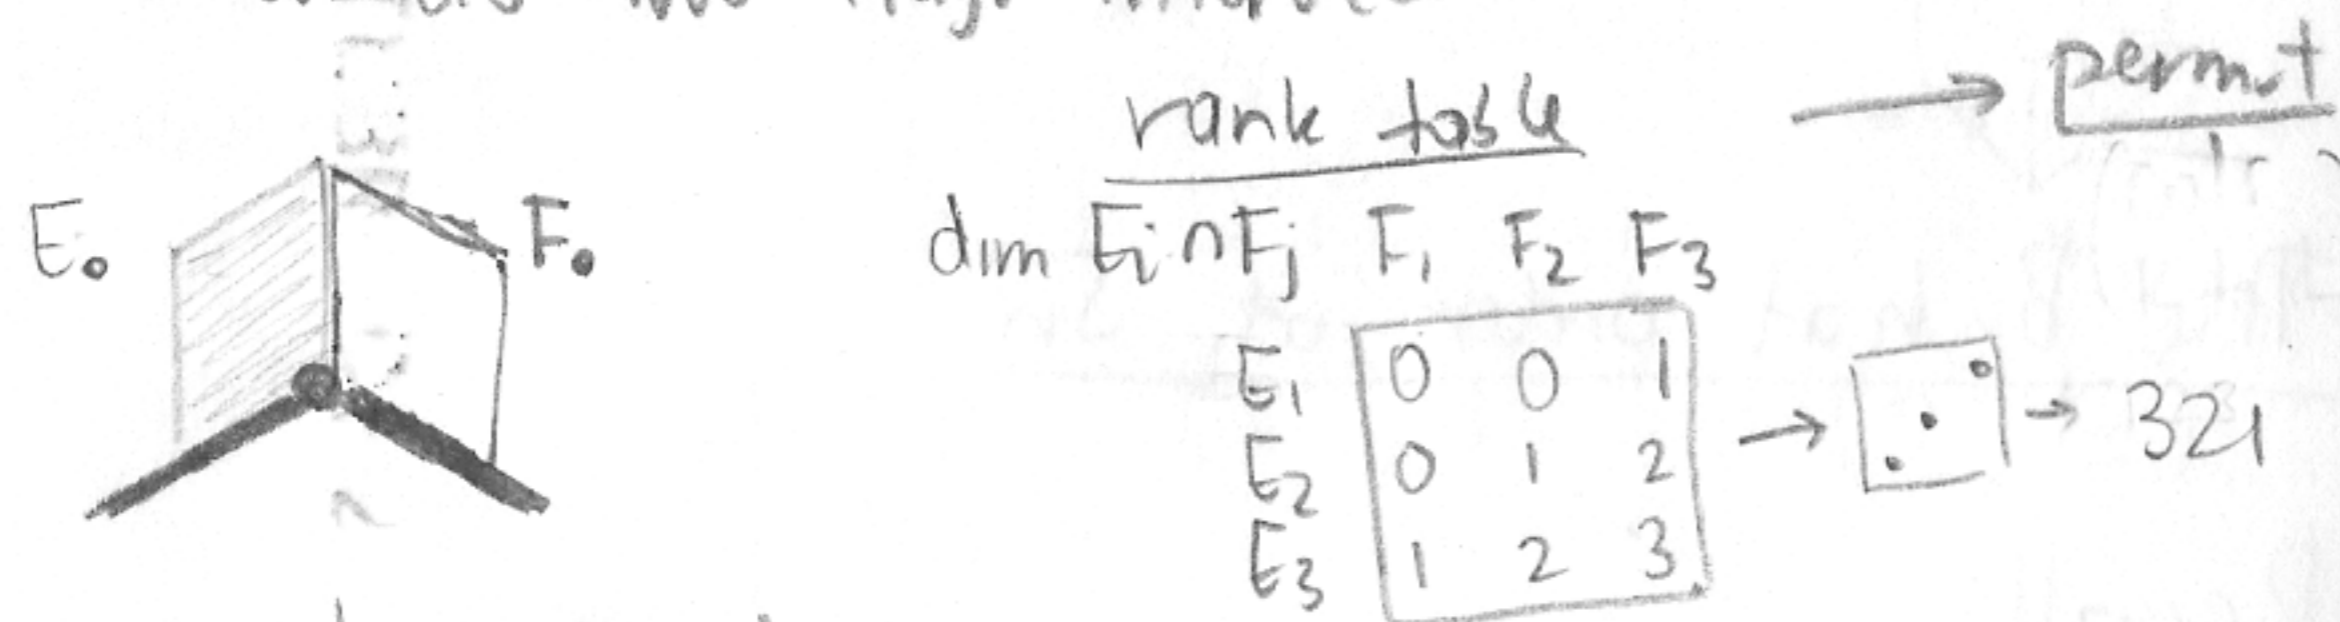 rank table → permut
E• F• dim Ei∩Fj F1 F2 F3
E1 0 0 1
E2 0 1 2 → → 321
E3 1 2 3